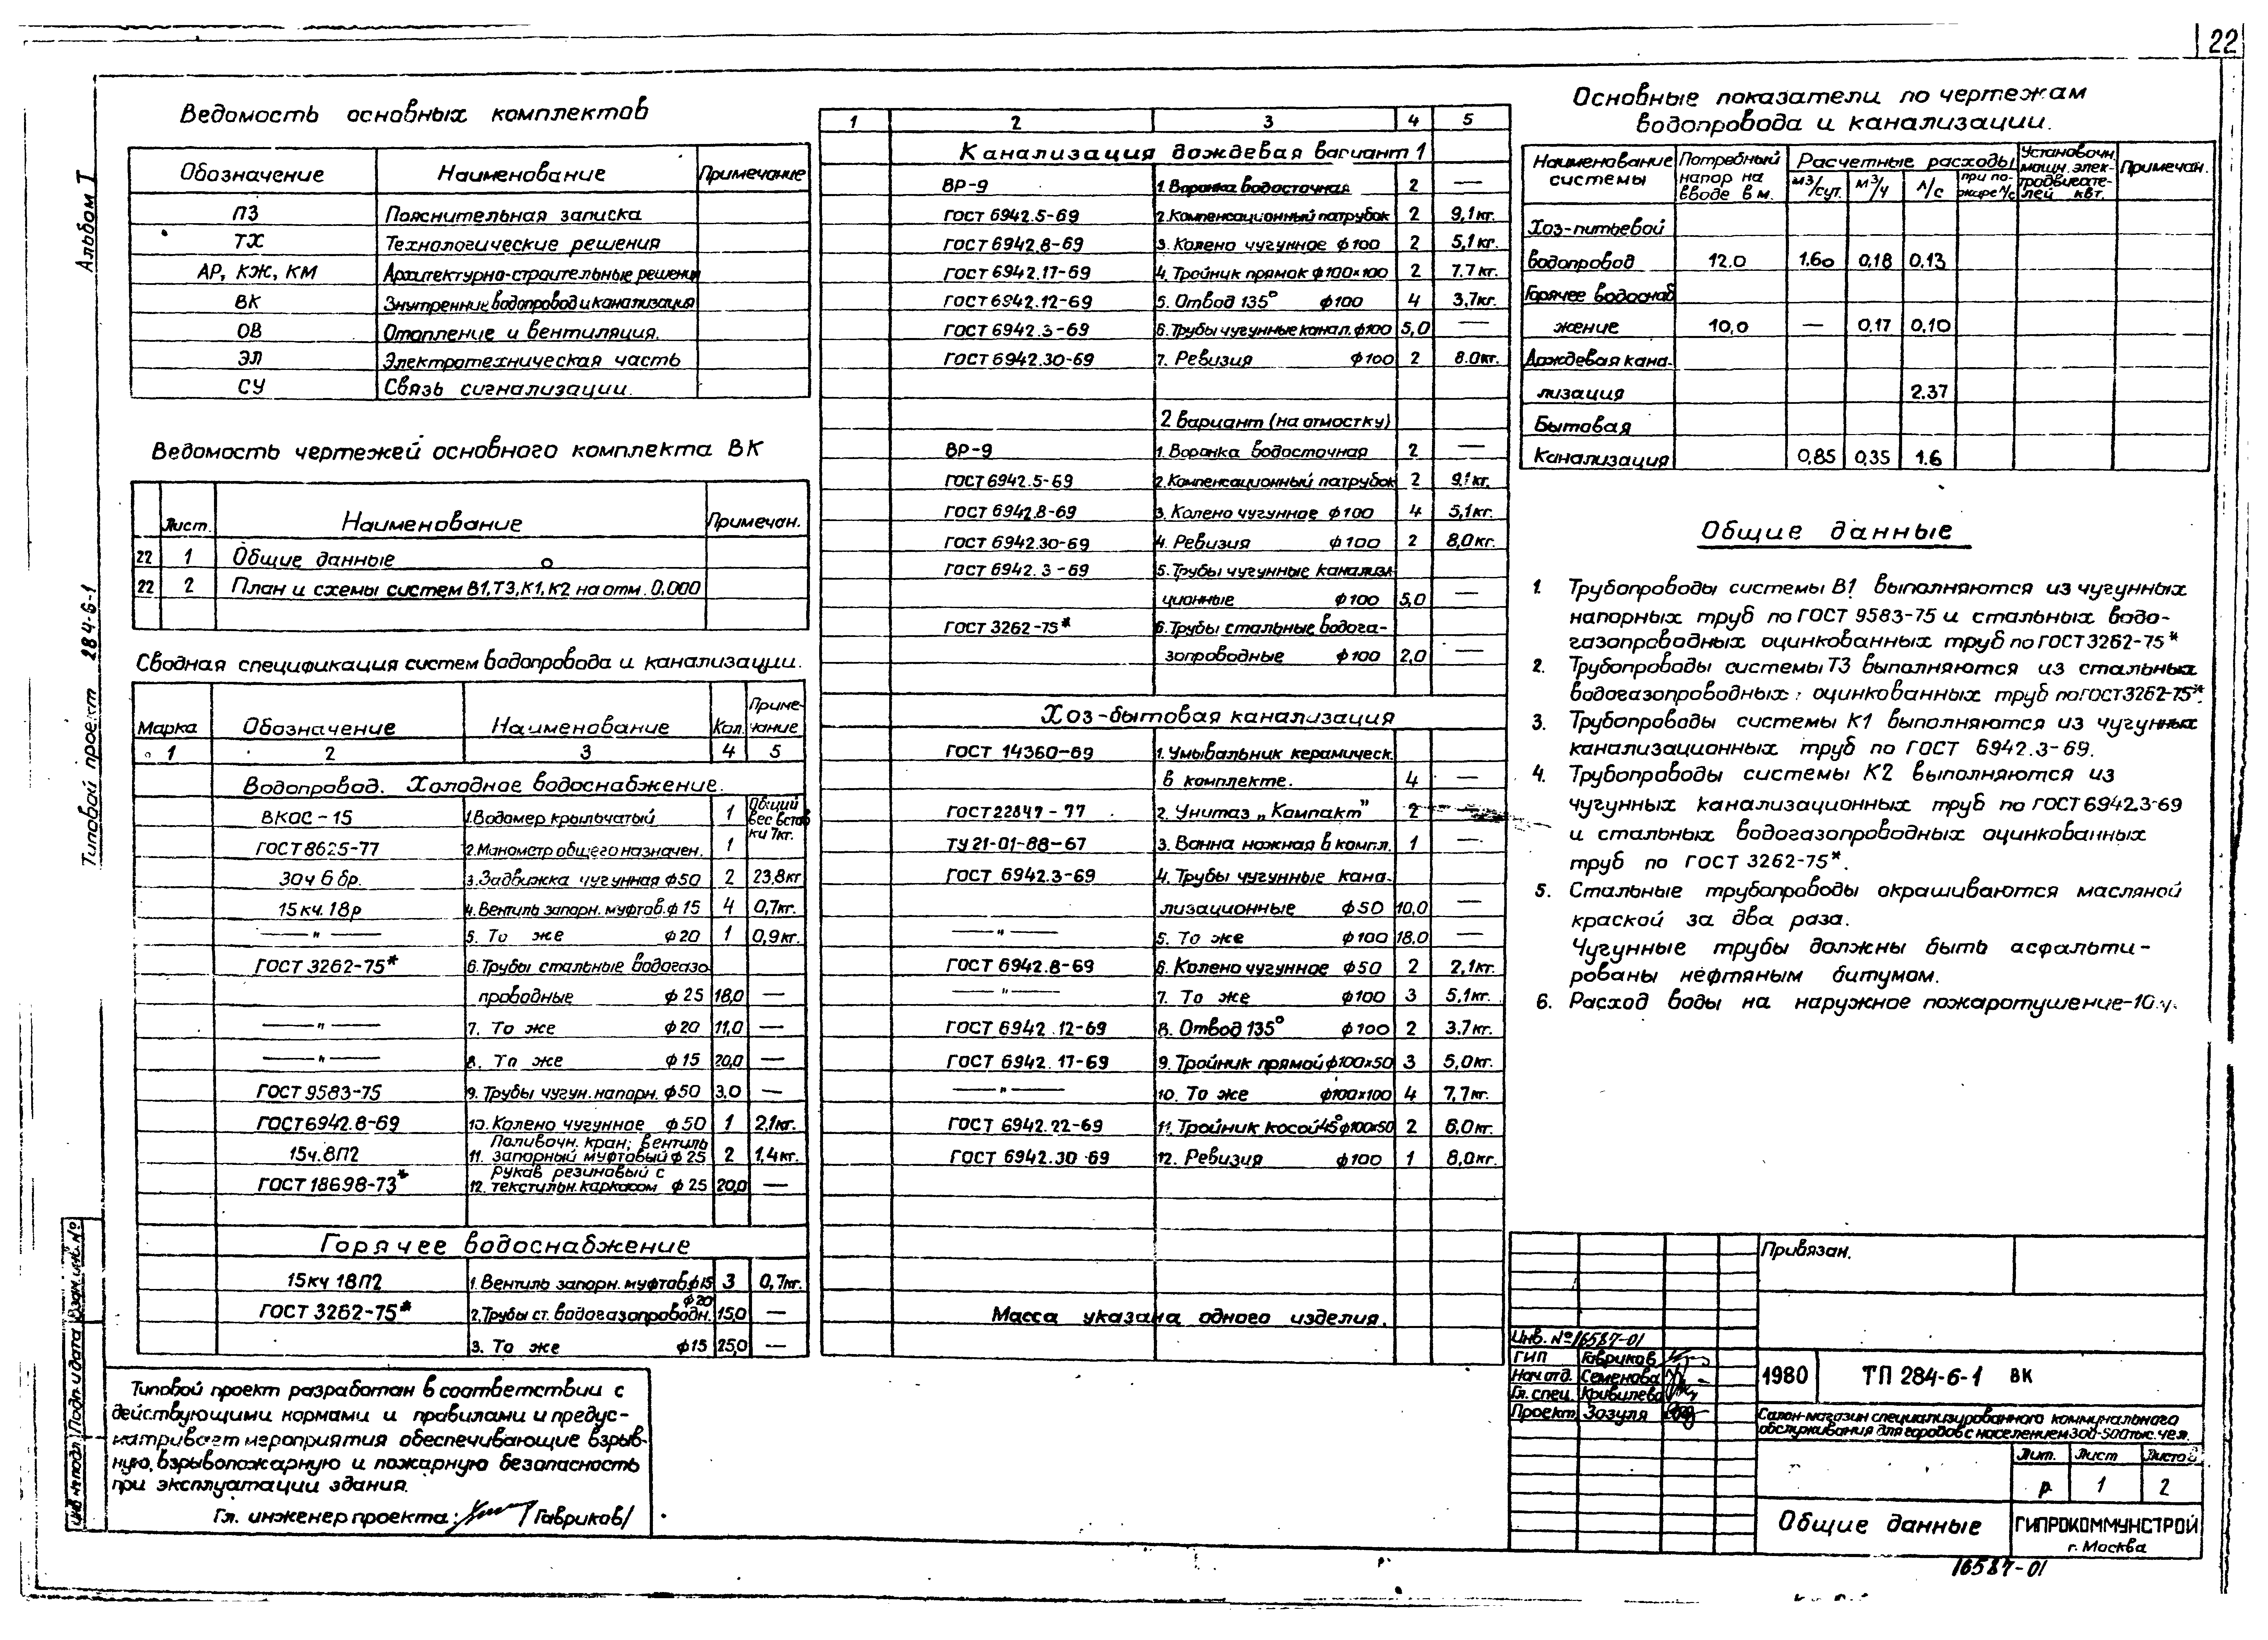 22
Альбом I
Типовой проект 284-6-1
Ведомость основных комплектов
Обозначение Наименование Примечание
ПЗ Пояснительная записка
ТХ Технологические решения
АР, КЖ, КМ Архитектурно-строительные решения
ВК Внутренние водопровод и канализация
ОВ Отопление и вентиляция.
ЭЛ Электротехническая часть
СУ Связь сигнализации.
Ведомость чертежей основного комплекта ВК
Лист. Наименование Примечан.
22 1 Общие данные
22 2 План и схемы систем В1,Т3,К1,К2 на отм. 0,000
Сводная спецификация систем водопровода и канализации.
Марка Обозначение Наименование Кол. Приме-
чание
1 2 3 4 5
Водопровод. Холодное водоснабжение.
ВКОС-15 1.Водомер крыльчатый 1 Общий
вес встав
ки 7кг.
ГОСТ 8625-77 2.Манометр общего назначен. 1
30ч 6 бр. 3.Задвижка чугунная ф50 2 23,8кг
15кч. 18р 4.Вентиль запорн. муфтов. ф 15 4 0,7кг.
—"— 5. То же ф20 1 0,9кг.
ГОСТ 3262-75* 6.Трубы стальные водогазо
проводные ф 25 18,0 —
—"— 7. То же ф20 11,0 —
—"— 8. То же ф15 20,0 —
ГОСТ 9583-75 9. Трубы чугун. напорн. ф50 3.0 —
ГОСТ 6942.8-69 10. Колено чугунное ф50 1 2,1кг.
Поливочн. кран; вентиль
15ч.8П2 11. запорный муфтовый ф 25 2 1,4кг.
Рукав резиновый с
ГОСТ 18698-73* 12. текстильн. каркасом ф 25 20,0 —
Горячее водоснабжение
15кч 18П2 1. Вентиль запорн. муфтов ф15 3 0,7кг.
ф20
ГОСТ 3262-75* 2.Трубы ст. водогазопроводн. 15,0 —
3. То же ф15 25,0 —
Типовой проект разработан в соответствии с
действующими нормами и правилами и предус-
матривает мероприятия обеспечивающие взрыв-
ную, взрывопожарную и пожарную безопасность
при эксплуатации здания.
Гл. инженер проекта: /Гавриков/
1 2 3 4 5
Канализация дождевая вариант 1
ВР-9 1. Воронка водосточная 2 —
ГОСТ 6942.5-69 2.Компенсационный патрубок 2 9,1кг.
ГОСТ 6942.8-69 3. Колено чугунное ф100 2 5,1кг.
ГОСТ 6942.17-69 4. Тройник прямой ф100х100 2 7.7кг.
ГОСТ 6942.12-69 5. Отвод 135° ф100 4 3,7кг.
ГОСТ 6942.3-69 6.Трубы чугунные канал. ф100 5,0 —
ГОСТ 6942.30-69 7. Ревизия ф100 2 8.0кг.
2 вариант (на отмостку)
ВР-9 1. Воронка водосточная 2 —
ГОСТ 6942.5-69 2.Компенсационный патрубок 2 9,1кг.
ГОСТ 6942.8-69 3. Колено чугунное ф100 4 5,1кг.
ГОСТ 6942.30-69 4. Ревизия ф100 2 8,0кг.
ГОСТ 6942.3-69 5.Трубы чугунные канализа
ционные ф100 5,0 —
ГОСТ 3262-75* 6.Трубы стальные водога-
зопроводные ф100 2,0 —
Хоз-бытовая канализация
ГОСТ 14360-69 1. Умывальник керамическ.
в комплекте. 4 —
ГОСТ 22847-77 2. Унитаз „Компакт" 2
ТУ 21-01-88-67 3. Ванна ножная в компл. 1 —
ГОСТ 6942.3-69 4. Трубы чугунные кана-
лизационные ф50 10,0 —
—"— 5. То же ф100 18.0 —
ГОСТ 6942.8-69 6. Колено чугунное ф50 2 2,1кг.
—"— 7. То же ф100 3 5,1кг.
ГОСТ 6942.12-69 8. Отвод 135° ф100 2 3.7кг.
ГОСТ 6942.17-69 9. Тройник прямой ф100х50 3 5,0кг.
—"— 10. То же ф100х100 4 7,7кг.
ГОСТ 6942.22-69 11. Тройник косой 45° ф100х50 2 6,0кг.
ГОСТ 6942.30-69 12. Ревизия ф100 1 8,0кг.
Масса указана одного изделия.
Основные показатели по чертежам
водопровода и канализации.
Наименование системы Потребный напор на вводе в м. Расчетные расходы м³/сут. м³/ч л/с при по-жаре л/с Установочн. мощн. элек-тродвигате-лей квт. Примечан.
Хоз-питьевой
водопровод 12.0 1.60 0,18 0,13
Горячее водоснаб
жение 10,0 — 0.17 0,10
Дождевая кана-
лизация 2.37
Бытовая
Канализация 0,85 0,35 1.6
Общие данные
1. Трубопроводы системы В1 выполняются из чугунных
напорных труб по ГОСТ 9583-75 и стальных водо-
газопроводных оцинкованных труб по ГОСТ 3262-75*
2. Трубопроводы системы Т3 выполняются из стальных
водогазопроводных оцинкованных труб по ГОСТ 3262-75*.
3. Трубопроводы системы К1 выполняются из чугунных
канализационных труб по ГОСТ 6942.3-69.
4. Трубопроводы системы К2 выполняются из
чугунных канализационных труб по ГОСТ 6942.3-69
и стальных водогазопроводных оцинкованных
труб по ГОСТ 3262-75*.
5. Стальные трубопроводы окрашиваются масляной
краской за два раза.
Чугунные трубы должны быть асфальти-
рованы нефтяным битумом.
6. Расход воды на наружное пожаротушение-10
Привязан.
Инв. № 16587-01
ГИП Гавриков
Нач отд. Семенова
Гл. спец. Кривилева
Проект. Зозуля
1980 ТП 284-6-1 ВК
Салон-магазин специализированного коммунального
обслуживания для городов с населением 300-500тыс. чел.
Лит. Лист Листов
Р 1 2
Общие данные
ГИПРОКОММУНСТРОЙ
г. Москва
16587-01
Инв. № подл. Подп. и дата Взам. инв. №